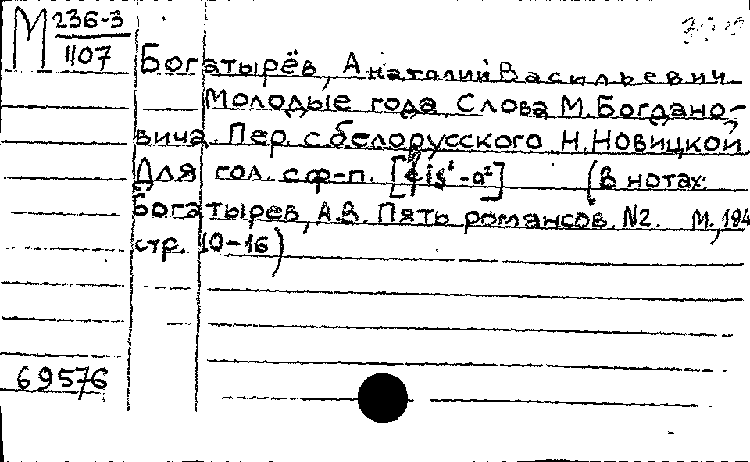 М 236-3
1107
Богатырёв, Анатолий Васильевич
Молодые года. Слова М. Богдано-
вича. Пер. с белорусского Н. Новицкой
Для гол. с ф-п. (В нотах:
Богатырев, А.В. Пять романсов. N2. М., 194
стр. 10-16)
69576